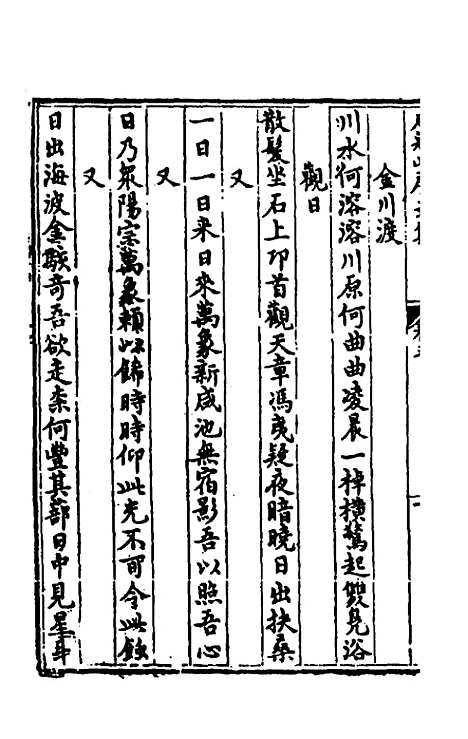 金川渡
川水何溶溶川原何曲曲凌晨一棹橫驚起雙鳧浴
觀日
散髮坐石上卬首觀天章馮夷疑夜暗曉日出扶桑
又
一日一日来日來萬象新咸池無宿影吾以照吾心
又
日乃衆陽宗萬象賴以飾時時仰此光不可令此蝕
又
日出海波金駭奇吾欲走柰何豐其蔀日中見星斗